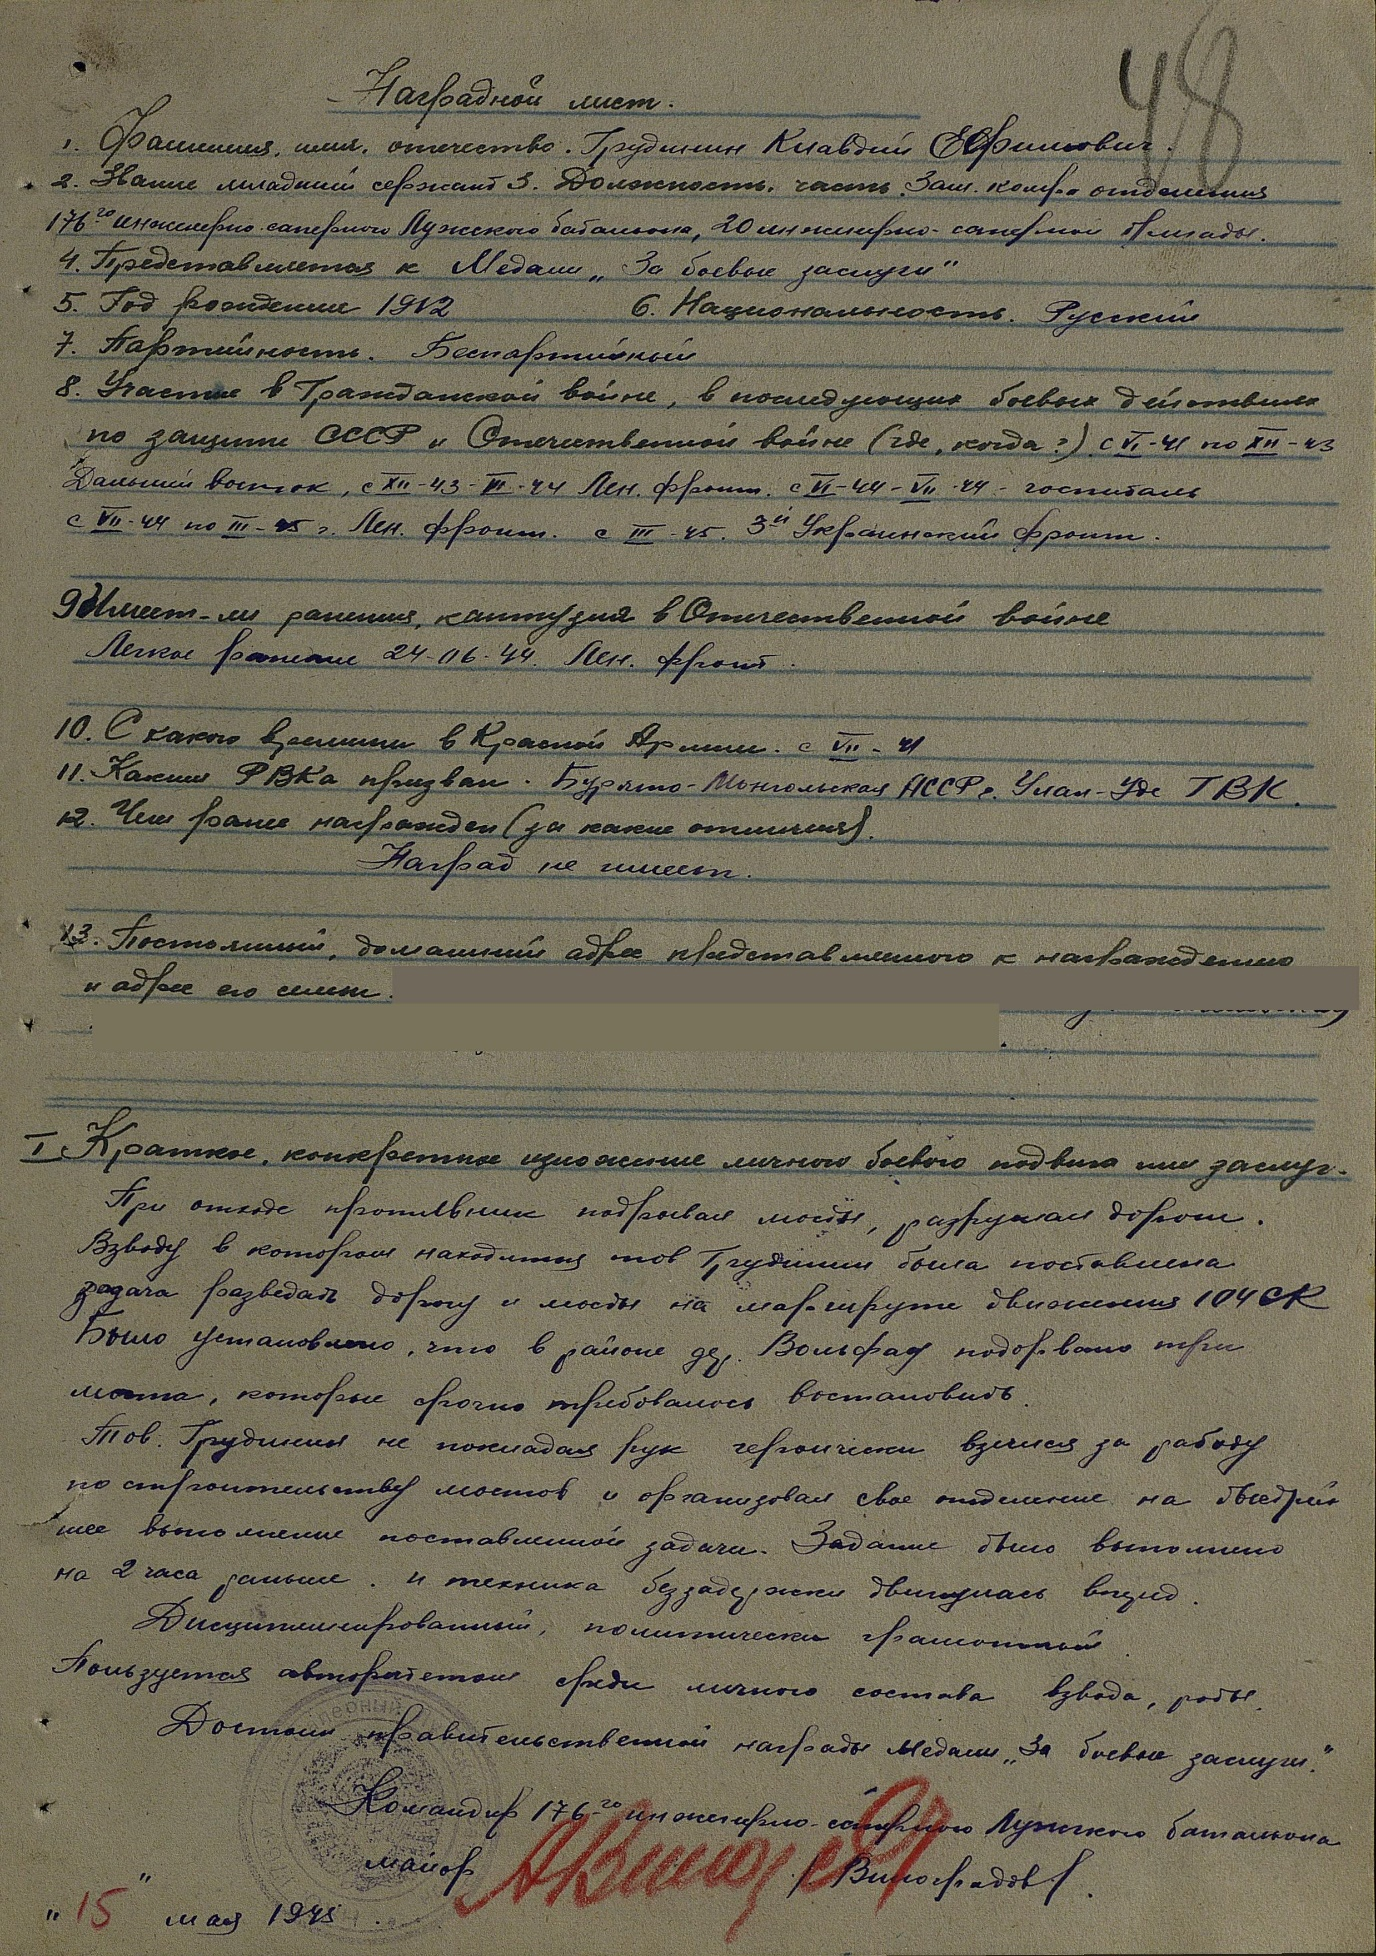 48
Наградной лист.
1. Фамилия, имя, отчество. Грудинин Клавдий Ефимович.
2. Звание младший сержант 3. Должность, часть. Зам. комр. отделения
176го инженерно-саперного Лужского батальона, 20 инженерно-саперной бригады.
4. Представляется к Медали „За боевые заслуги"
5. Год рождения 1912 6. Национальность. Русский
7. Партийность. Беспартийный
8. Участие в Гражданской войне, в последующих боевых действиях
по защите СССР и Отечественной войне (где, когда?) с VI-41 по XII-43
Дальний восток, с XII-43-VI-44 Лен. фронт. с VI-44-VII-44- госпиталь
с VII-44 по III-45 г. Лен. фронт. с III-45. 3й Украинский фронт.
9. Имеет-ли ранения, кантузия в Отечественной войне
Легкое ранение 24-06-44. Лен. фронт.
10. С какого времени в Красной Армии. с VII-41
11. Каким РВКа призван. Бурято-Монгольская АССР г. Улан-Удэ ГВК.
12. Чем ранее награжден (за какие отличия).
Наград не имеет.
13. Постоянный, домашний адрес представленного к награждению
и адрес его семьи.
I. Краткое, конкретное изложение личного боевого подвига или заслуг.
При отходе противник подрывал мосты, разрушал дороги.
Взводу в котором находился тов Грудинин была поставлена
задача разведать дорогу и мосты на маршруте движения 104 СК
Было установлено, что в районе дер. Вольфау подорвано три
моста, которые срочно требовалось востановить.
Тов. Грудинин не покладая рук героически взялся за работу
по строительству мостов и организовал свое отделение на быстрей
шее выполнение поставленной задачи. Задание было выполнено
на 2 часа раньше. и техника без задержки двинулась вперед.
Дисциплинированный, политически грамотный.
Пользуется авторитетом среди личного состава взвода, роты.
Достоин правительственной награды Медали „За боевые заслуги."
Командир 176-го инженерно-саперного Лужского батальона
майор /Виноградов/.
„15" мая 1945 г.